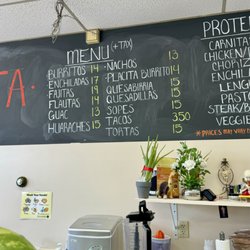 TA.
MENU (+TAX)
BURRITOS 14
ENCHILADAS 17
FAJITAS 19
FLAUTAS 14
GUAC 13
HUARACHES 15
NACHOS 13
PLACITA BURRITO 14
QUESABIRRIA 15
QUESADILLAS 15
SOPES 15
TACOS 350
TORTAS 15
PROTE
CARNITA
CHICKEN
CHORIZ
ENCHIL
LENG
PAST
STEAK
VEGGIE
*PRICES MAY VARY